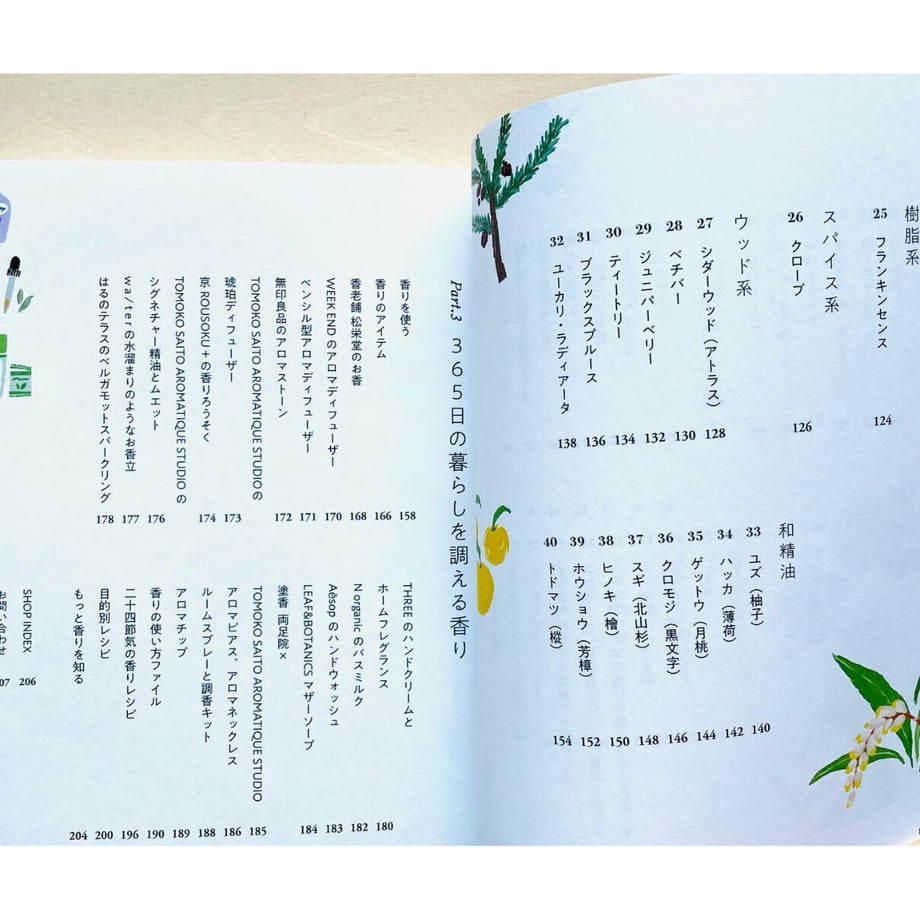 樹脂系
25 フランキンセンス 124
スパイス系
26 クローブ 126
ウッド系
27 シダーウッド（アトラス） 128
28 ベチバー 130
29 ジュニパーベリー 132
30 ティートリー 134
31 ブラックスプルース 136
32 ユーカリ・ラディアータ 138
和精油
33 ユズ（柚子） 140
34 ハッカ（薄荷） 142
35 ゲットウ（月桃） 144
36 クロモジ（黒文字） 146
37 スギ（北山杉） 148
38 ヒノキ（檜） 150
39 ホウショウ（芳樟） 152
40 トドマツ（椴） 154
Part.3 365日の暮らしを調える香り
香りを使う 158
香りのアイテム 166
香老舗 松栄堂のお香 168
WEEK ENDのアロマディフューザー 170
ペンシル型アロマディフューザー 171
無印良品のアロマストーン 172
TOMOKO SAITO AROMATIQUE STUDIOの
琥珀ディフューザー 173
京 ROUSOKU＋の香りろうそく 174
TOMOKO SAITO AROMATIQUE STUDIOの
シグネチャー精油とムエット 176
wa/terの水溜まりのようなお香立 177
はるのテラスのベルガモットスパークリング 178
THREEのハンドクリームと
ホームフレグランス 180
N organicのバスミルク 182
Aēsopのハンドウォッシュ 183
LEAF&BOTANICS マザーソープ 184
塗香 両足院×
TOMOKO SAITO AROMATIQUE STUDIO 185
アロマピアス、アロマネックレス 186
ルームスプレーと調香キット 188
アロマチップ 189
香りの使い方ファイル 190
二十四節気の香りレシピ 196
目的別レシピ 200
もっと香りを知る 204
SHOP INDEX 206
お問い合わせ 07